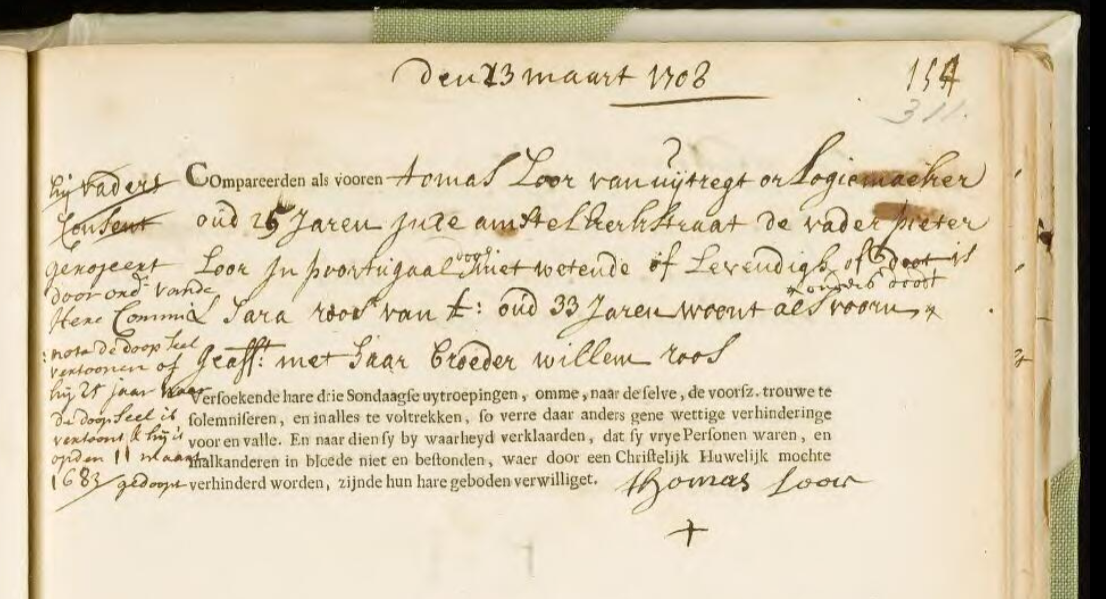 den 23 maart 1708
154
311.
Compareerden als vooren tomas Loor van uijtregt orlogiemaeker
oud 25 Jaren in de amstelkerkstraat de vader pieter
Loor in poortugaal dog niet wetende of Levendigh of doot is
ouders doodt
Sara roos van A: oud 33 Jaren woont als vooren
geasst: met haar broeder willem roos
hij vaders
Consent
door ord vande
Here Commis
nota de doop seel
vertoonen of
hij 25 jaar
de doopseel is
vertoont & hij is
op den 11 maart
1683 gedoopt
Versoekende hare drie Sondaagse uytroepingen, omme, naar deselve, de voorsz. trouwe te
solemniseren, en in alles te voltrekken, so verre daar anders gene wettige verhinderinge
voor en valle. En naar dien sy by waarheyd verklaarden, dat sy vrye Personen waren, en
malkanderen in bloede niet en bestonden, waer door een Christelijk Huwelijk mochte
verhinderd worden, zijnde hun hare geboden verwilliget.
thomas Loor